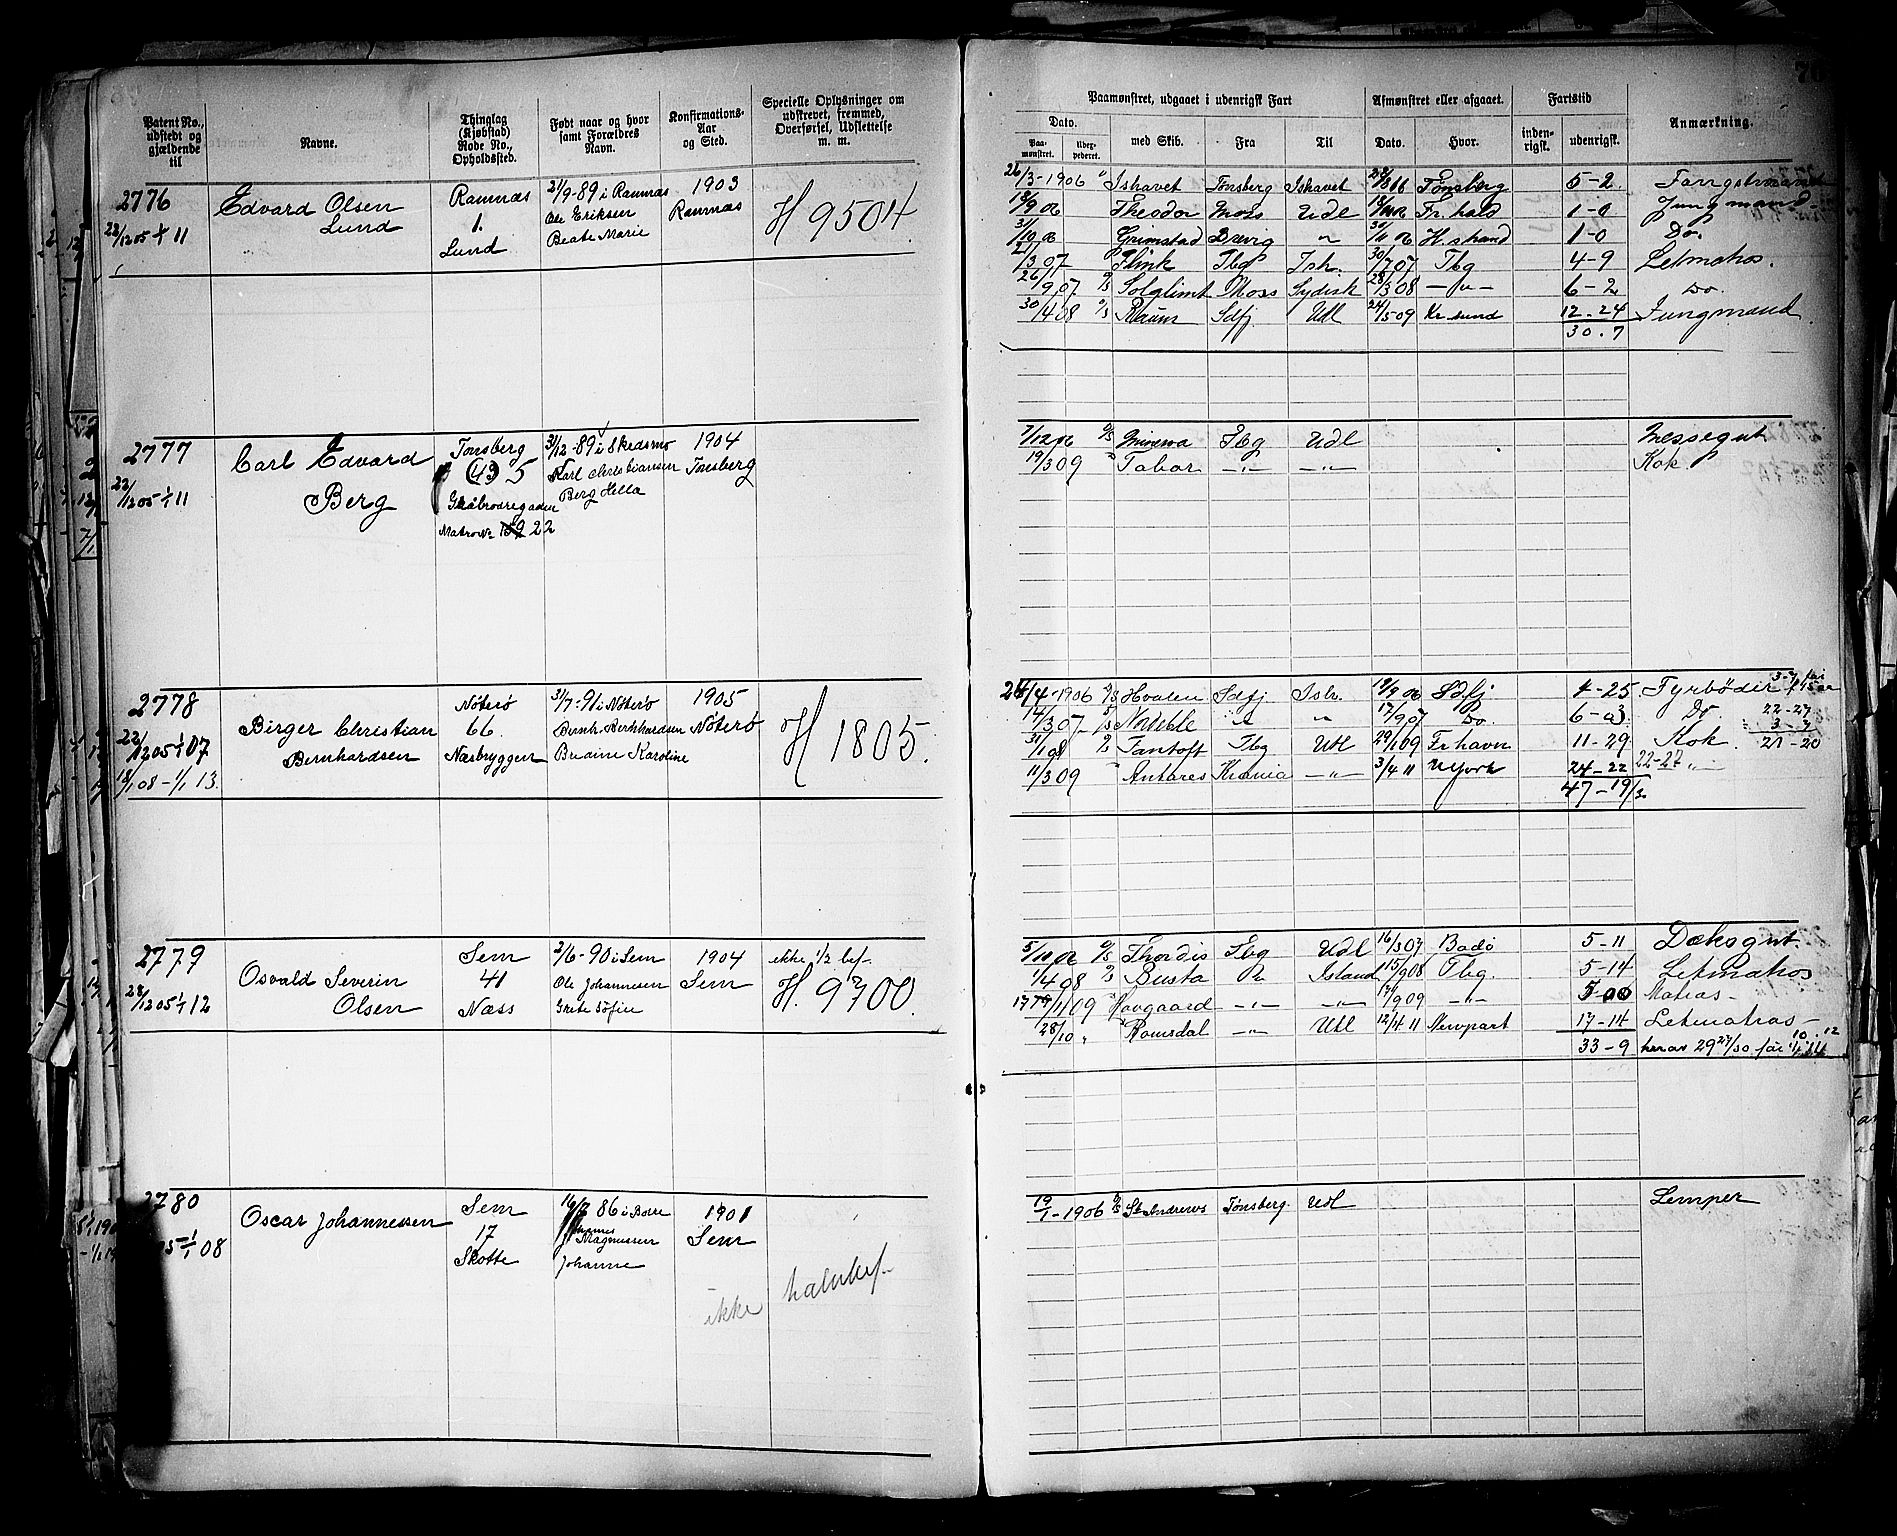 Patent No., udstedt og gjældende til
Navne.
Thinglag (Kjøbstad) Rode No., Opholdssted.
Født naar og hvor samt Forældres Navn.
Konfirmations-Aar og Sted.
Specielle Oplysninger om udskrevet, fremmed, Overførsel, Udslettelse m. m.
Paamønstret, udgaaet i udenrigsk Fart
Afmønstret eller afgaaet.
Fartstid
Anmærkning.
Dato.
Paa-mønstret.
med Skib.
Fra
Til
Dato.
Hvor.
inden-rigsk.
udenrigsk.
2776
22/12 05 1/1 11
Edvard Olsen
Lund
Ramnæs
1.
Lund
21/9-89 i Ramnæs
Ole Eriksen
Beate Marie
1903
Ramnæs
H 9504
26/3-1906 " Ishavet Tønsberg Ishavet Tønsberg 5-2 Fangstmand
19/9 06 Theodor Moss Udl Fr. hald 1-0 Jungmand
31/10 06 Grimstad Brevig " 30/11 06 H. strand 1-0 Do.
3 07 Flink Tbg Ish. 30/7 07 Tbg 4-9 Letmatros.
26/9 07 Solglimt Moss Sydish 28/3 08 -"- 6-2 Do
30/4 08 Raum Sdfj Udl 24/5 09 Kr. sund 12-24 Jungmand
30.7
2777
22/12 05 1/1 11
Carl Edvard
Berg
Tønsberg
43 5
Gråbrødregaden
Matr No 22
31/12-89 i Skedsmo
Karl Christiansen
Berg Hella
1904
Tønsberg
7/12 06 Minerva Tbg Udl Messegut
19/3 09 " Tabor -"- -"- Kok
2778
22/12 05 1/1 07
18/1 08 - 1/1 13.
Birger Christian
Bernhardsen
Nøterø
66
Næsbryggen
31/7-91 i Nøterø
Bernh. Bernhardsen
Karoline
1905
Nøterø
H 1805.
24/4-1906 Hvalen Sdfj Ish. 19/9 06 Sdfj 4-25 Fyrbøder
14/3 07 " 17/9 07 Do. 6-03 Do 22-27
31/1 08 Tantoff Tbg Utl 29/1 09 Fr.havn 11-29 Kok 21-20
11/3 09 " Antares Kr.ania -"- 3/4 11 N York 24-22 22-22 "
47-19
2779
22/12 05 1/1 12
Osvald Severin
Olsen
Sem
41
Næss
2/6-90 i Sem
Ole Johannesen
Grete Sofie
1904
Sem
ikke 1/2 bef.
H. 9700.
5/10 02 Thordis Tbg Udl 16/3 07 Bodø 5-11 Dæksgut
1/4 08 Busta Do Island 15/9 08 Tbg. 5-14 Letmatros
11 09 " Havgaard -"- -"- 9 09 -"- 5-00 Matros-
28/10 " Romsdal -"- Utl 12/4 11 Newport 17-14 Letmatros-
33-9 herav 29 27/30 før
2780
05 1/1 08
Oscar Johannessen
Sem
17
Skotte
16/7 86 i Borre
Johannes Magnussen
Johanne
1901
Sem
ikke halvbef.
19/1-1906 St Andrews Tønsberg. Udl Lemper